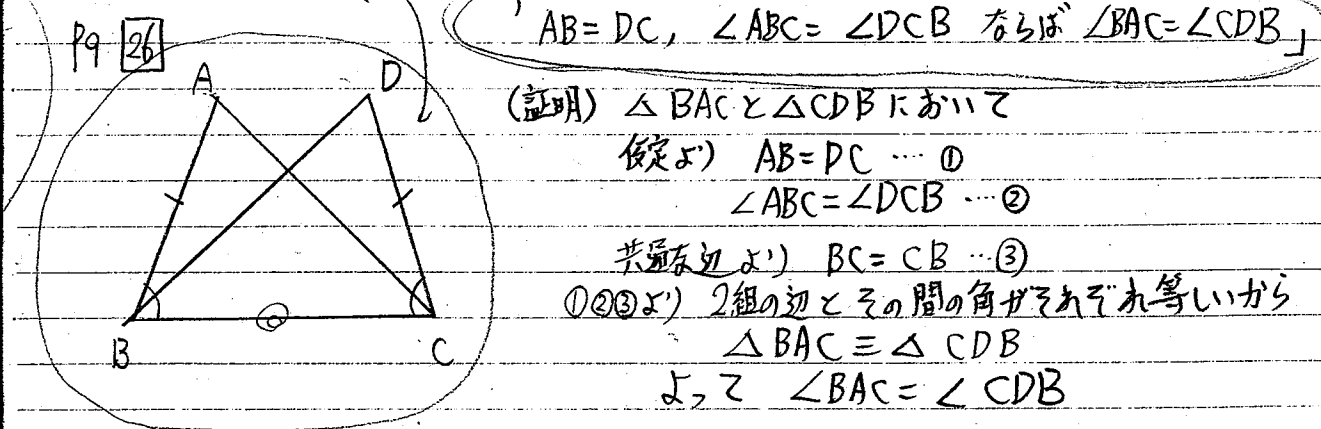 「AB=DC, ∠ABC=∠DCB ならば ∠BAC=∠CDB」
P9 26
A D
B C
(証明) △BACと△CDBにおいて
仮定より AB=DC …①
∠ABC=∠DCB …②
共通な辺より BC=CB …③
①②③より 2組の辺とその間の角がそれぞれ等しいから
△BAC≡△CDB
よって ∠BAC=∠CDB